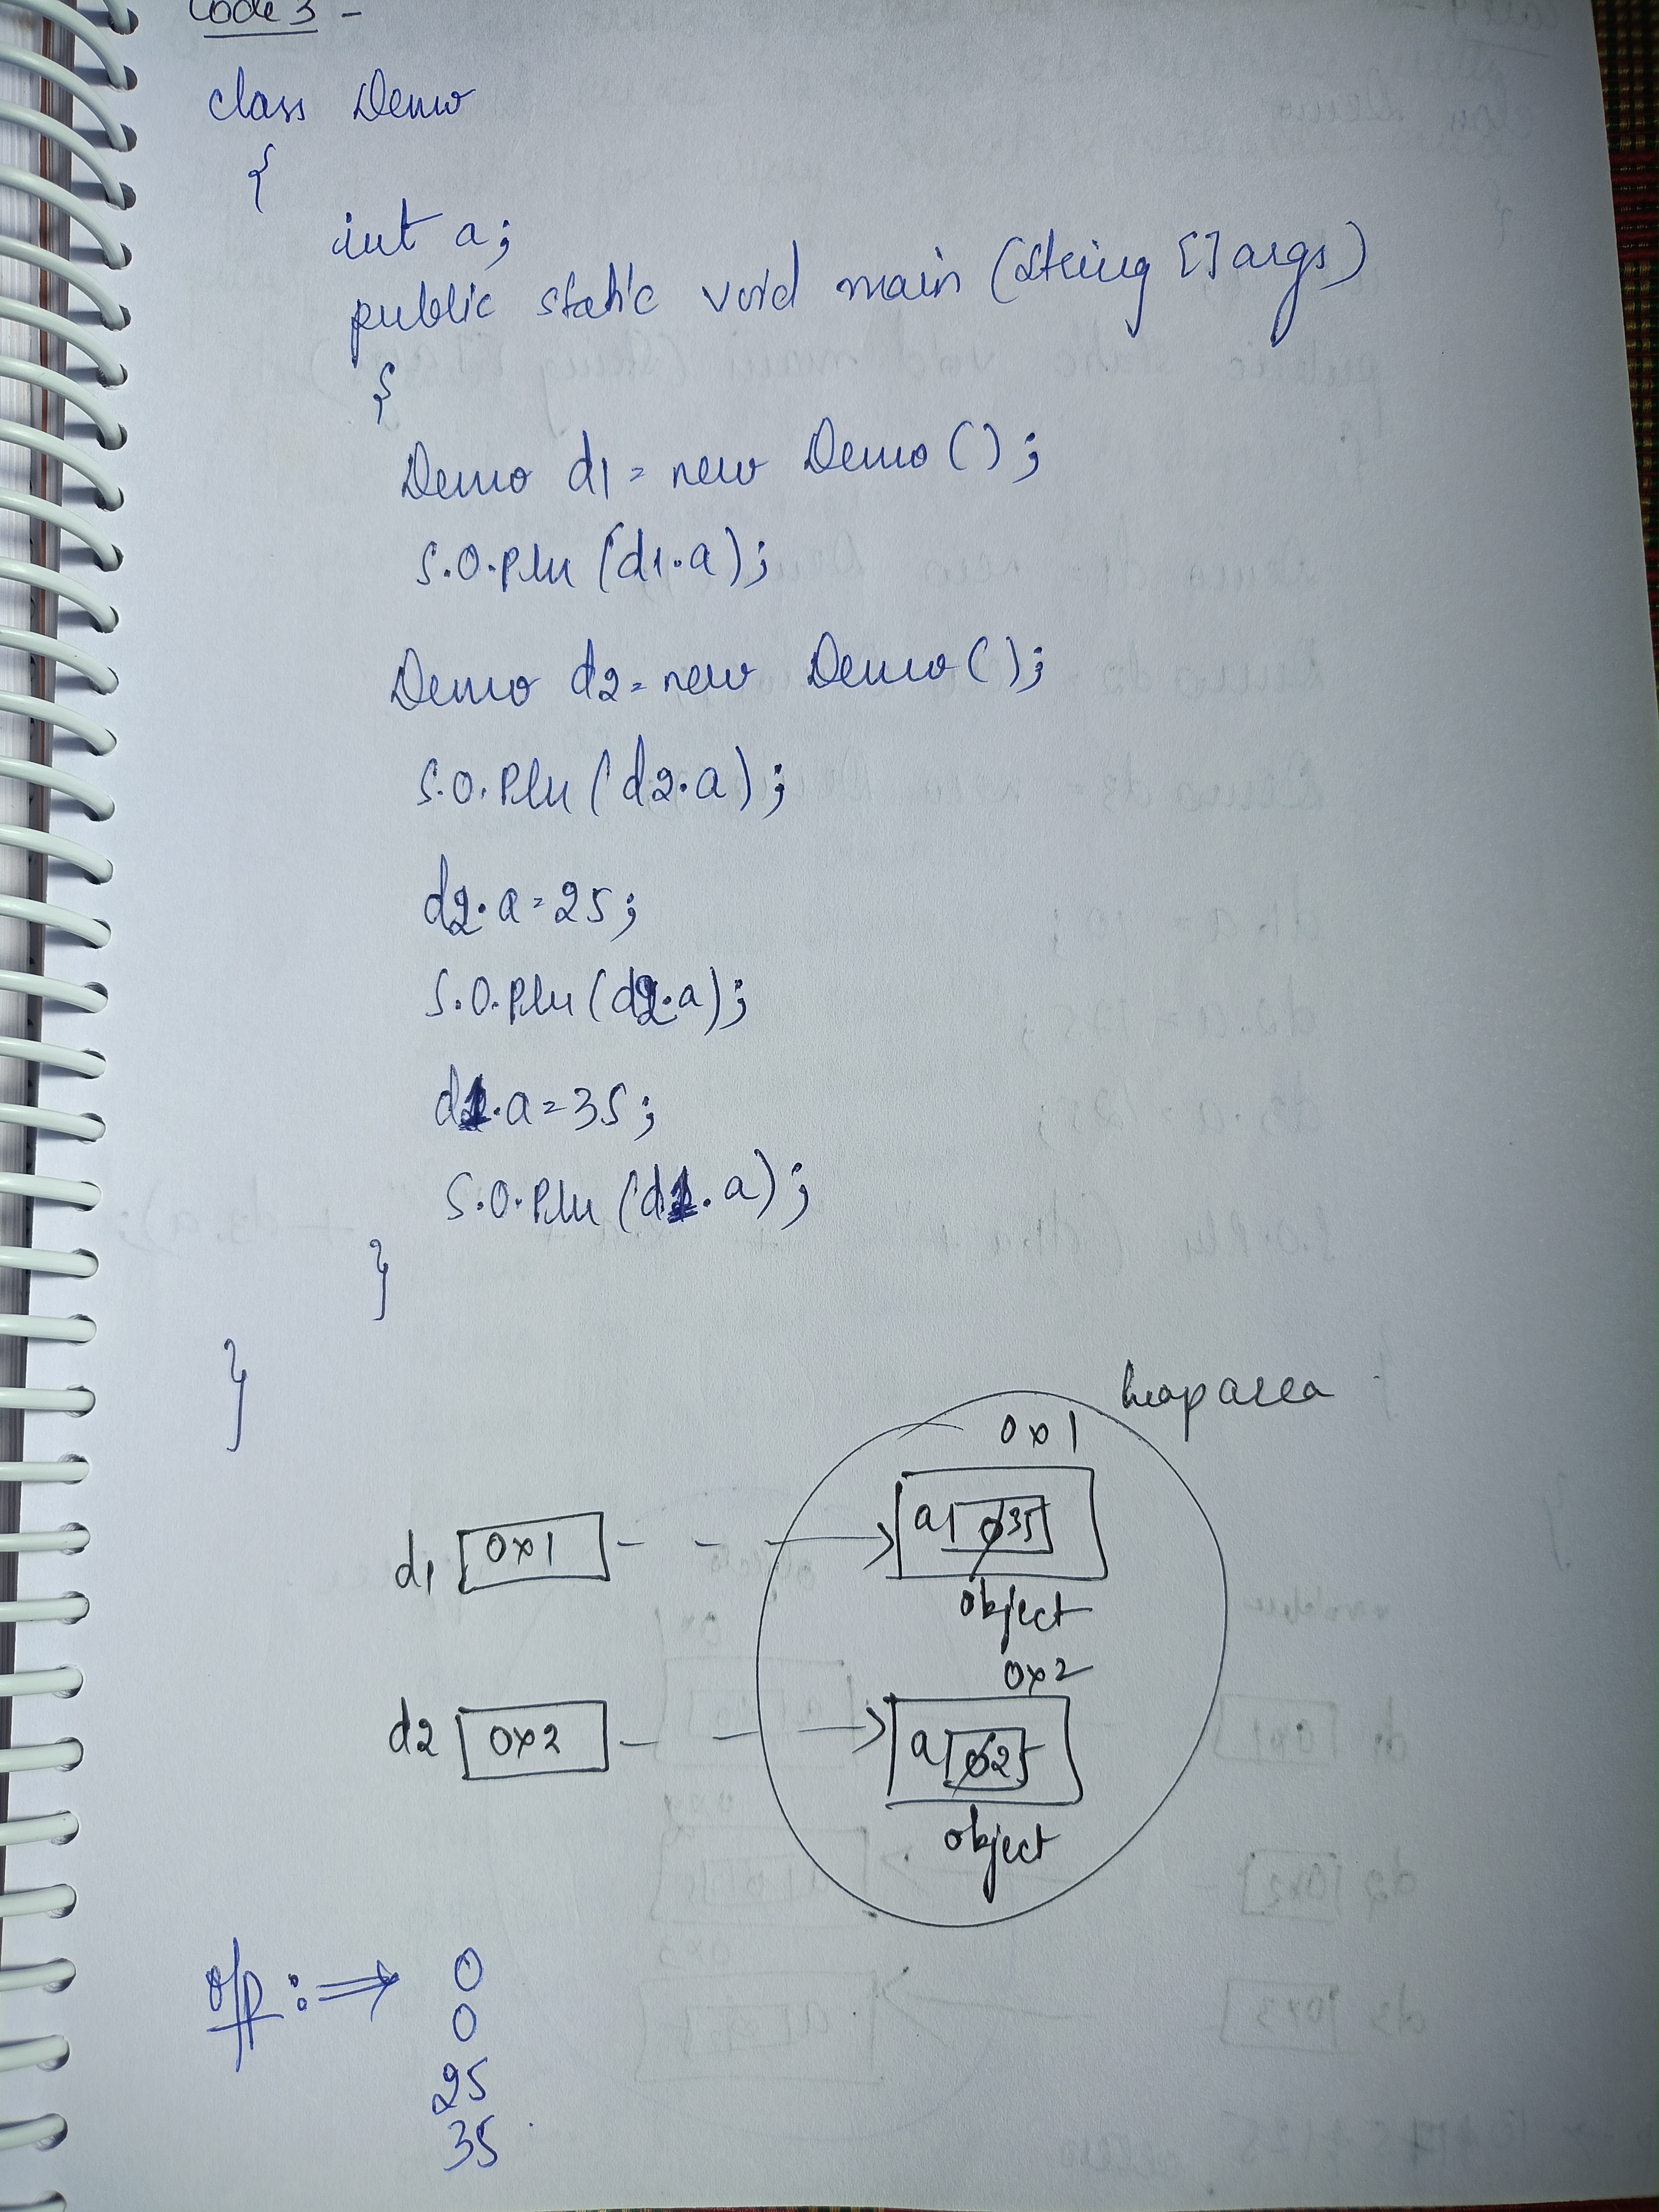 Code 3 -
class Demo
{
int a;
public static void main (String [] args)
{
Demo d1 = new Demo ();
S.O.Pln (d1.a);
Demo d2 = new Demo ();
S.O.Pln (d2.a);
d2.a = 25;
S.O.Pln (d2.a);
d1.a = 35;
S.O.Pln (d1.a);
}
}
heap area
0x1
d1 0x1 a 0 35
object
0x2
d2 0x2 a 0 25
object
o/p : ⇒ 0
0
25
35